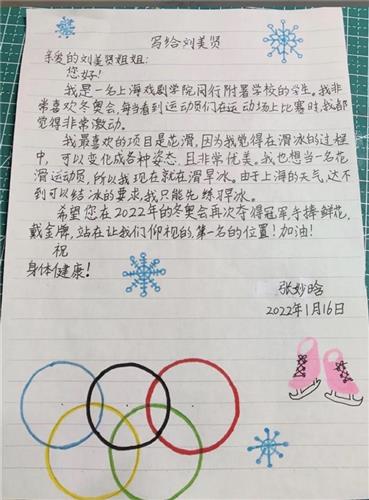 写给刘美贤
亲爱的刘美贤姐姐:
您好!
我是一名上海戏剧学院闵行附署学校的学生。我非
常喜欢冬奥会,每当看到运动员们在运动场上比赛时,我都
觉得非常激动。
我最喜欢的项目是花滑,因为我觉得在滑冰的过程
中,可以变化成各种姿态,且非常优美。我也想当一名花
滑运动员,所以我现在就在滑旱冰。由于上海的天气,达不
到可以结冰的要求,我只能先练习旱冰。
希望您在2022年的冬奥会再次夺得冠军,手捧鲜花,
戴金牌,站在让我们仰视的,第一名的位置!加油!
祝
身体健康!
张妙晗
2022年1月16日